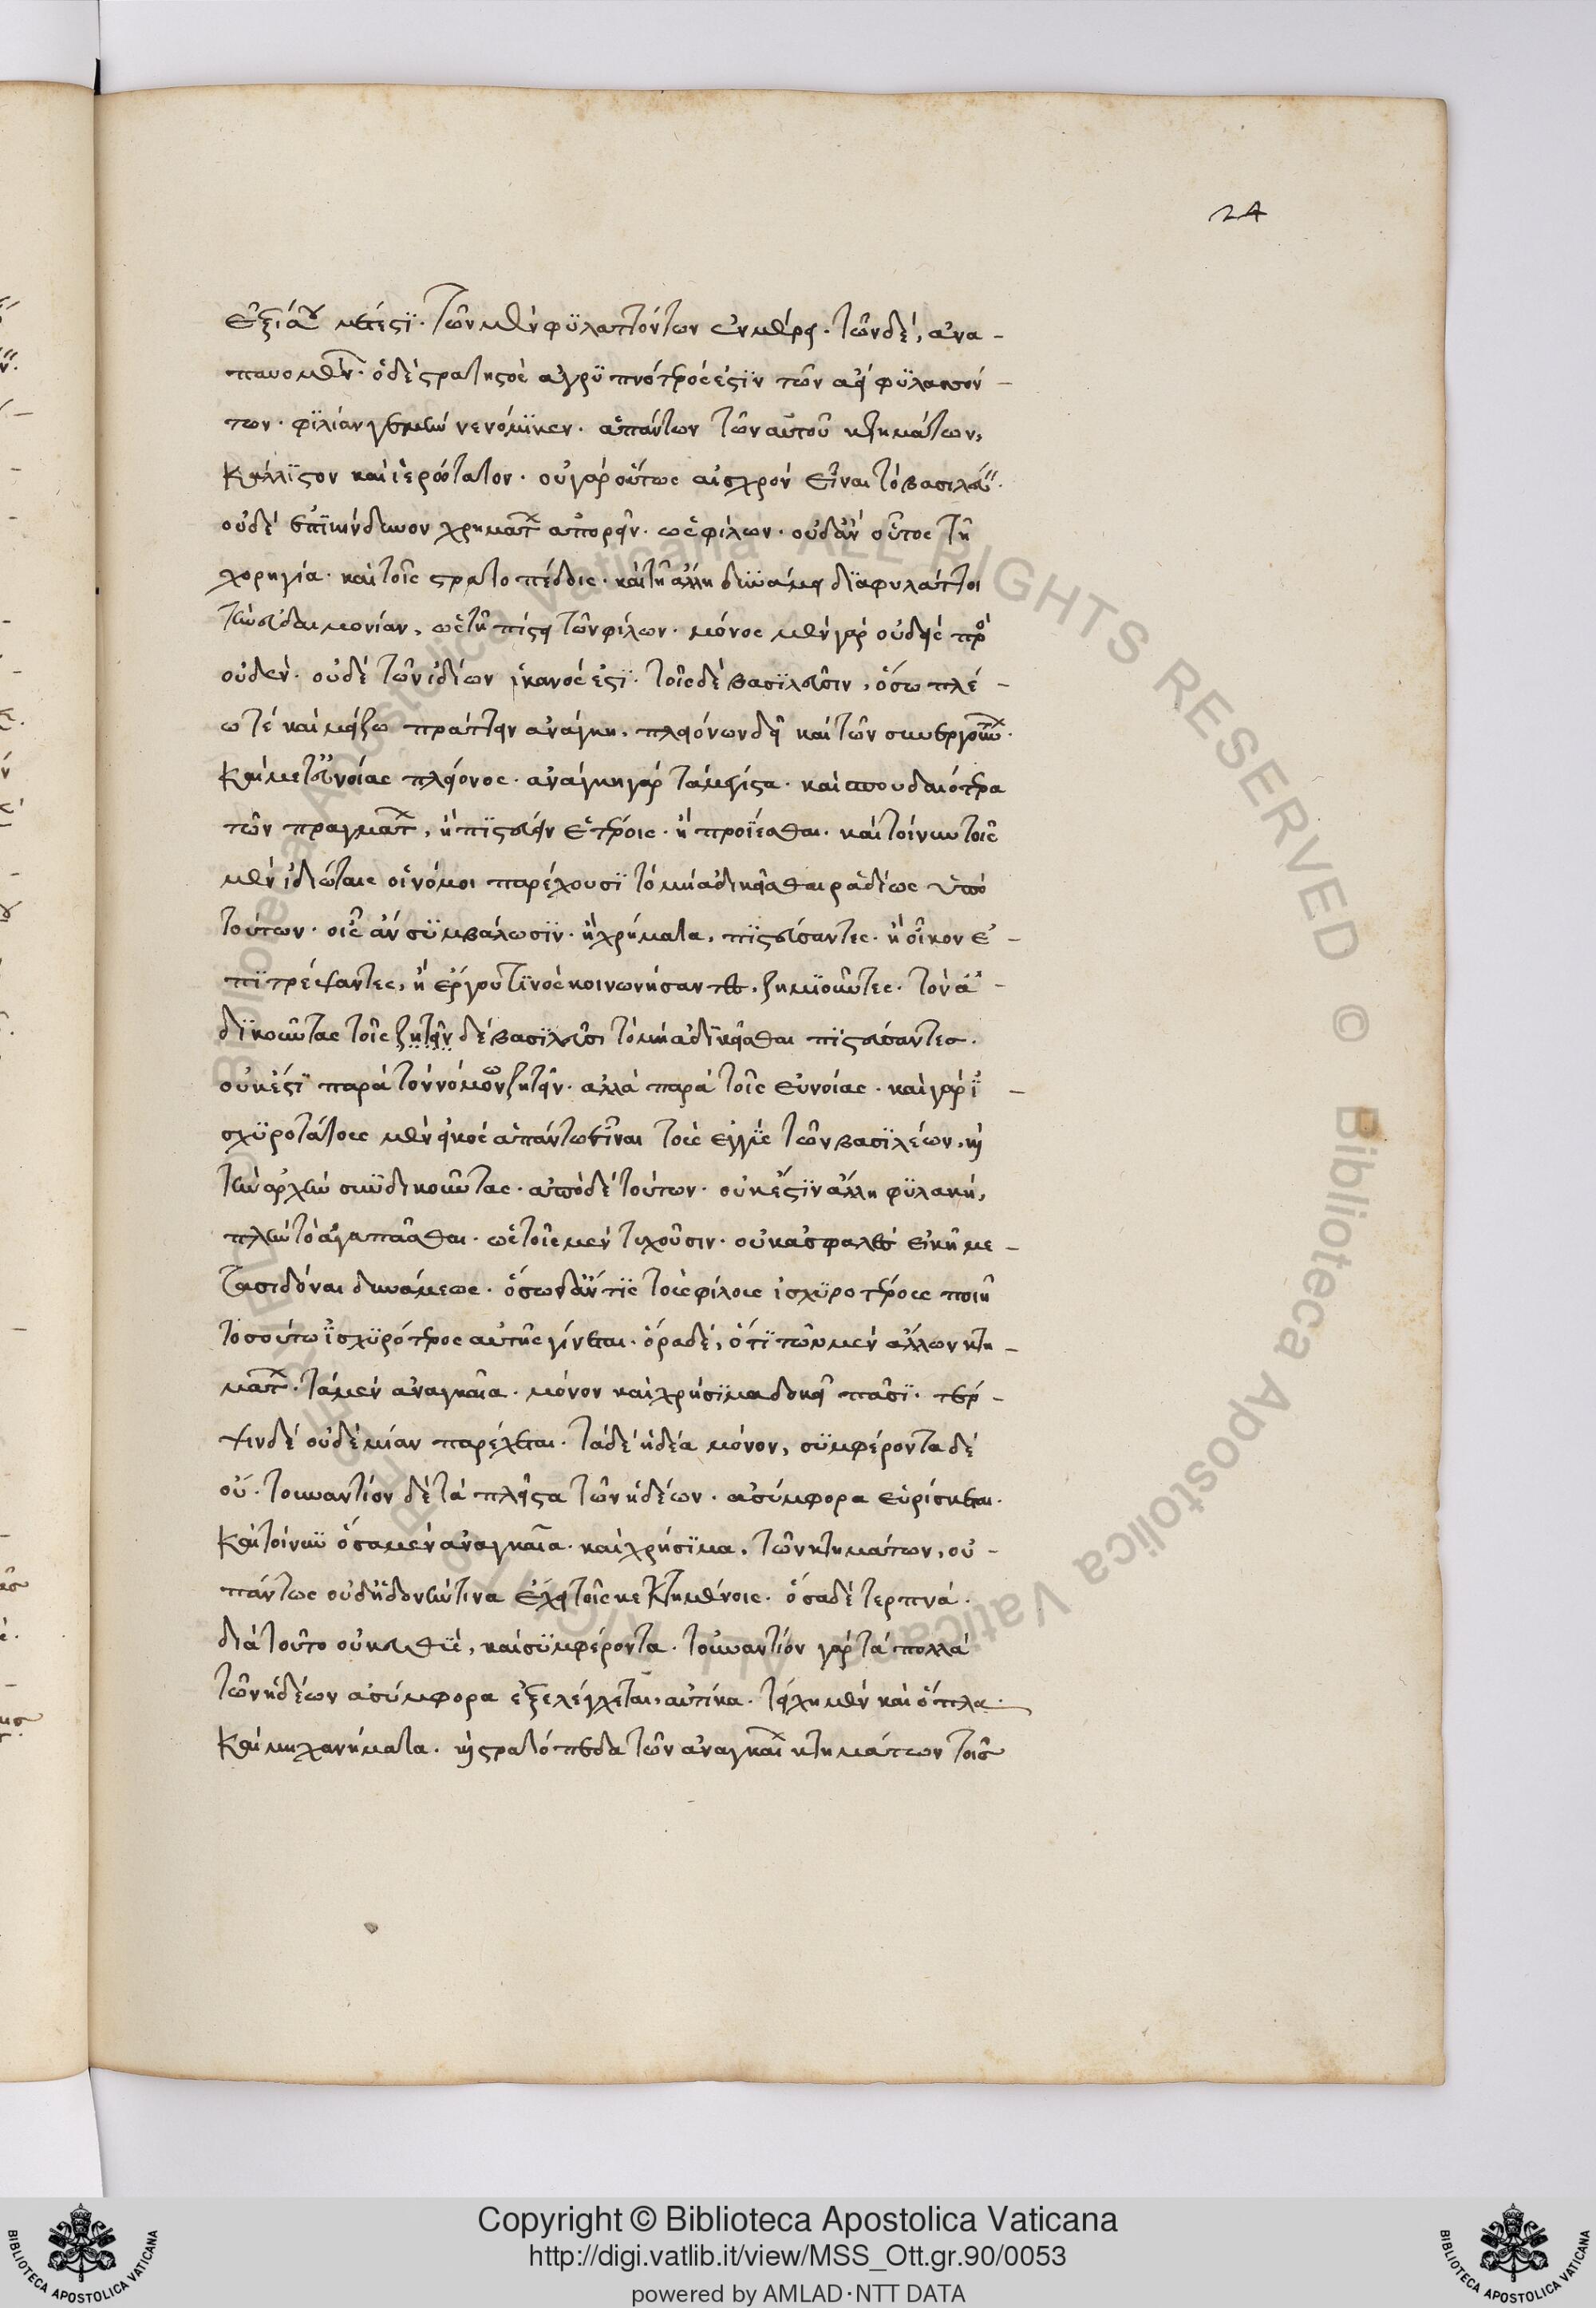 24
ἐξ ἴσου μέτεστι· τῶν μὲν φυλαττόντων ἐν μέρει· τῶν δὲ, ἀνα-
παυομένων· ὁ δὲ στρατηγὸς ἀγρυπνότερός ἐστιν τῶν ἀεὶ φυλαττόν-
των· φιλίαν γε μὴν νενόμικεν· ἁπάντων τῶν αὐτοῦ κτημάτων,
κάλλιστον καὶ ἱερώτατον· οὐ γὰρ οὕτως αἰσχρὸν εἶναι τὸ βασιλεῦσι·
οὐδὲ ἐπικίνδυνον χρημάτων ἀπορεῖν· ὡς φίλων· οὐδ' ἂν οὗτος τῇ
χορηγίᾳ· καὶ τοῖς στρατοπέδοις· καὶ τῇ ἄλλῃ δυνάμει διαφυλάττοι
τὴν εὐδαιμονίαν, ὡς τῇ πίστει τῶν φίλων· μόνος μὲν γὰρ οὐδεὶς πρὸς
οὐδέν· οὐδὲ τῶν ἰδίων ἱκανός ἐστι· τοῖς δὲ βασιλεῦσιν, ὅσῳ πλέ-
ω τὲ καὶ μείζω πράττειν ἀνάγκη, πλειόνων δεῖ καὶ τῶν συνεργούντων·
καὶ μετ' εὐνοίας πλείονος· ἀνάγκη γὰρ τὰ μέγιστα· καὶ σπουδαιότερα
τῶν πραγμάτων, ἢ πιστεύειν ἑτέροις· ἢ προΐεσθαι· καὶ τοίνυν τοῖς
μὲν ἰδιώταις οἱ νόμοι παρέχουσι τὸ μὴ ἀδικεῖσθαι ῥᾳδίως ὑπὸ
τούτων· οἷς ἂν συμβάλωσιν· ἢ χρήματα, πιστεύσαντες· ἢ οἶκον ἐ-
πιτρέψαντες, ἢ ἔργου τινὸς κοινωνήσαντες, ζημιοῦντες· τὸν ἀ-
δικοῦντας τοῖς ζητεῖν δὲ βασιλεῦσι τὸ μὴ ἀδικεῖσθαι πιστεύσαντες·
οὐκ ἔστι παρὰ τὸν νόμων ζητεῖν· ἀλλὰ παρὰ τοῖς εὐνοίας· καὶ γὰρ ἰ-
σχυροτάτους μὲν εἰκὸς ἁπάντων εἶναι τοὺς ἐγγὺς τῶν βασιλέων, καὶ
τὴν ἀρχὴν συνδικοῦντας· ἀπὸ δὲ τούτων· οὐκ ἔστιν ἄλλη φυλακή,
πλὴν τὸ ἀγαπᾶσθαι· ὡς τοῖς μὲν τυχοῦσιν· οὐκ ἀσφαλὲς εἰκῇ με-
ταδιδόναι δυνάμεως· ὅσων δ' ἄν τις τοὺς φίλους ἰσχυροτέρους ποιῇ
τοσούτῳ ἰσχυρότερος αὐτῆς γίνεται· ὅρα δὲ, ὅτι τῶν μὲν ἄλλων κτη-
μάτων· τὰ μὲν ἀναγκαῖα· μόνον καὶ χρήσιμα δοκεῖ πᾶσι· τέρ-
ψιν δὲ οὐδεμίαν παρέχεται· τὰ δὲ ἡδέα μόνον, συμφέροντα δὲ
οὔ· τοὐναντίον δὲ τὰ πλεῖστα τῶν ἡδέων· ἀσύμφορα εὑρίσκεται·
καὶ τοίνυν ὅσα μὲν ἀναγκαῖα· καὶ χρήσιμα, τῶν κτημάτων, οὐ-
πάντως οὐδ' ἡδονήν τινα ἔχει τοῖς κεκτημένοις· ὅσα δὲ τερπνὰ·
διὰ τοῦτο οὐκ εὐθὺς, καὶ συμφέροντα· τοὐναντίον γὰρ τὰ πολλὰ
τῶν ἡδέων ἀσύμφορα ἐξελέγχεται· αὐτίκα· τείχη μὲν καὶ ὅπλα·
καὶ μηχανήματα· καὶ στρατόπεδα τῶν ἀναγκαίων κτημάτων τοῖς
Copyright © Biblioteca Apostolica Vaticana
http://digi.vatlib.it/view/MSS_Ott.gr.90/0053
powered by AMLAD·NTT DATA